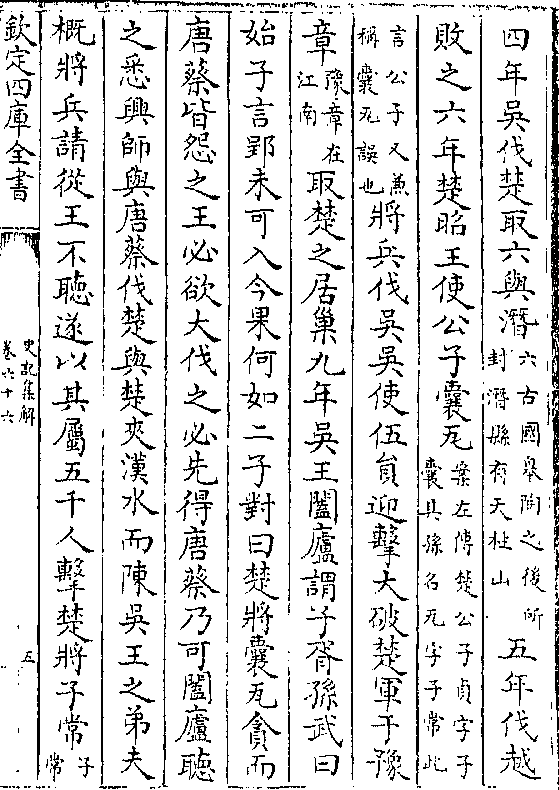 四年吳伐楚取六與灊六古國臯陶之後所封灊縣有天柱山五年伐越
敗之六年楚昭王使公子囊瓦案左傳楚公子貞字子囊其孫名瓦字子常此
言公子又兼稱囊瓦誤也將兵伐吳吳使伍員迎擊大破楚軍于豫
章豫章在江南取楚之居巢九年吳王闔廬謂子胥孫武曰
始子言郢未可入今果何如二子對曰楚將囊瓦貪而
唐蔡皆怨之王必欲大伐之必先得唐蔡乃可闔廬聽
之悉興師與唐蔡伐楚與楚夾漢水而陳吳王之弟夫
概將兵請從王不聽遂以其屬五千人擊楚將子常子常
欽定四庫全書
史記集解
卷六十六
五